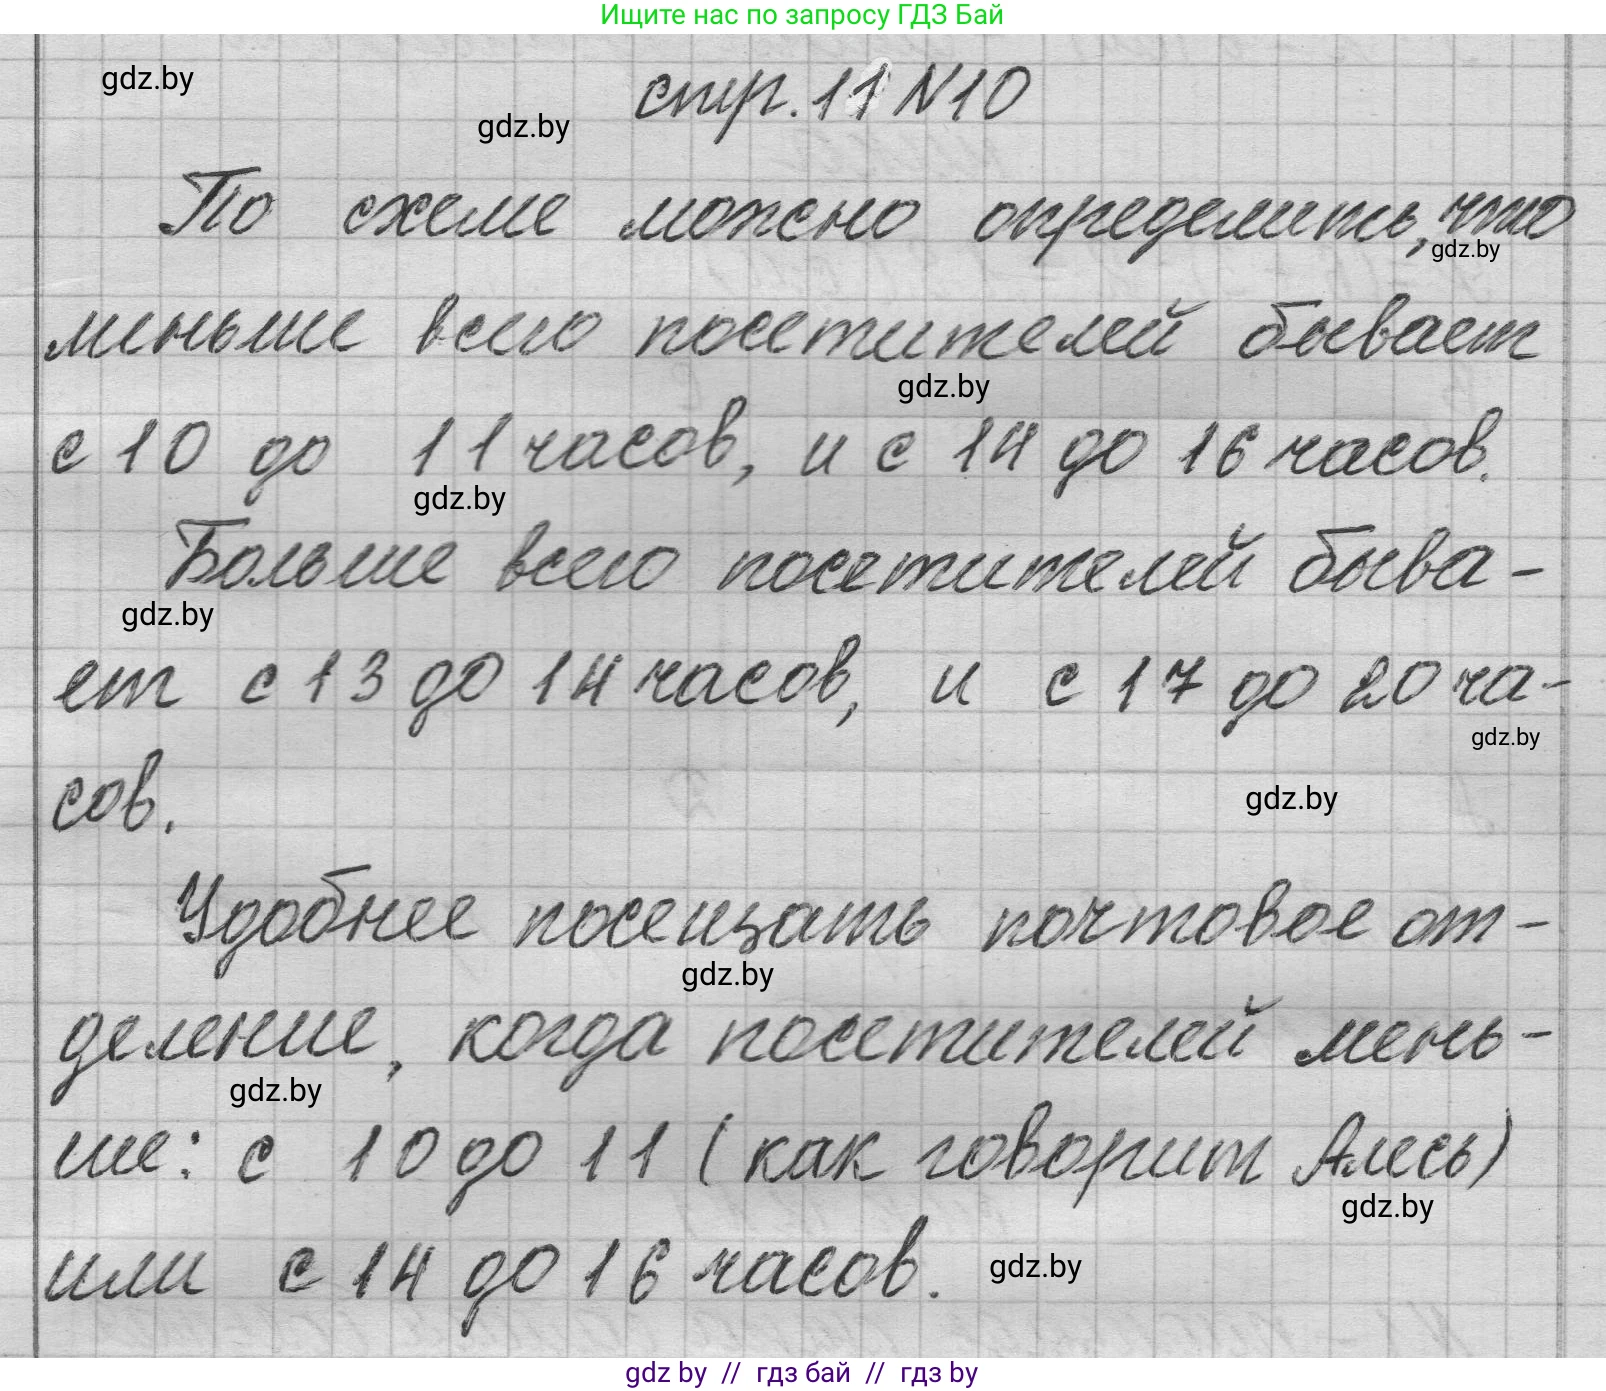 Ищите нас по запросу ГДЗ Бай
gdz.by
стр. 11 N10
gdz.by
По схеме можно определить, что
gdz.by
меньше всего посетителей бывает
gdz.by
с 10 до 11 часов, и с 14 до 16 часов.
gdz.by
Больше всего посетителей быва-
gdz.by
ет с 13 до 14 часов, и с 17 до 20 ча-
gdz.by
сов.
gdz.by
Удобнее посещать почтовое от-
gdz.by
деление, когда посетителей мень-
gdz.by
ше: с 10 до 11 (как говорит Алесь)
gdz.by
или с 14 до 16 часов.
gdz.by
gdz by // гдз бай // гдз by